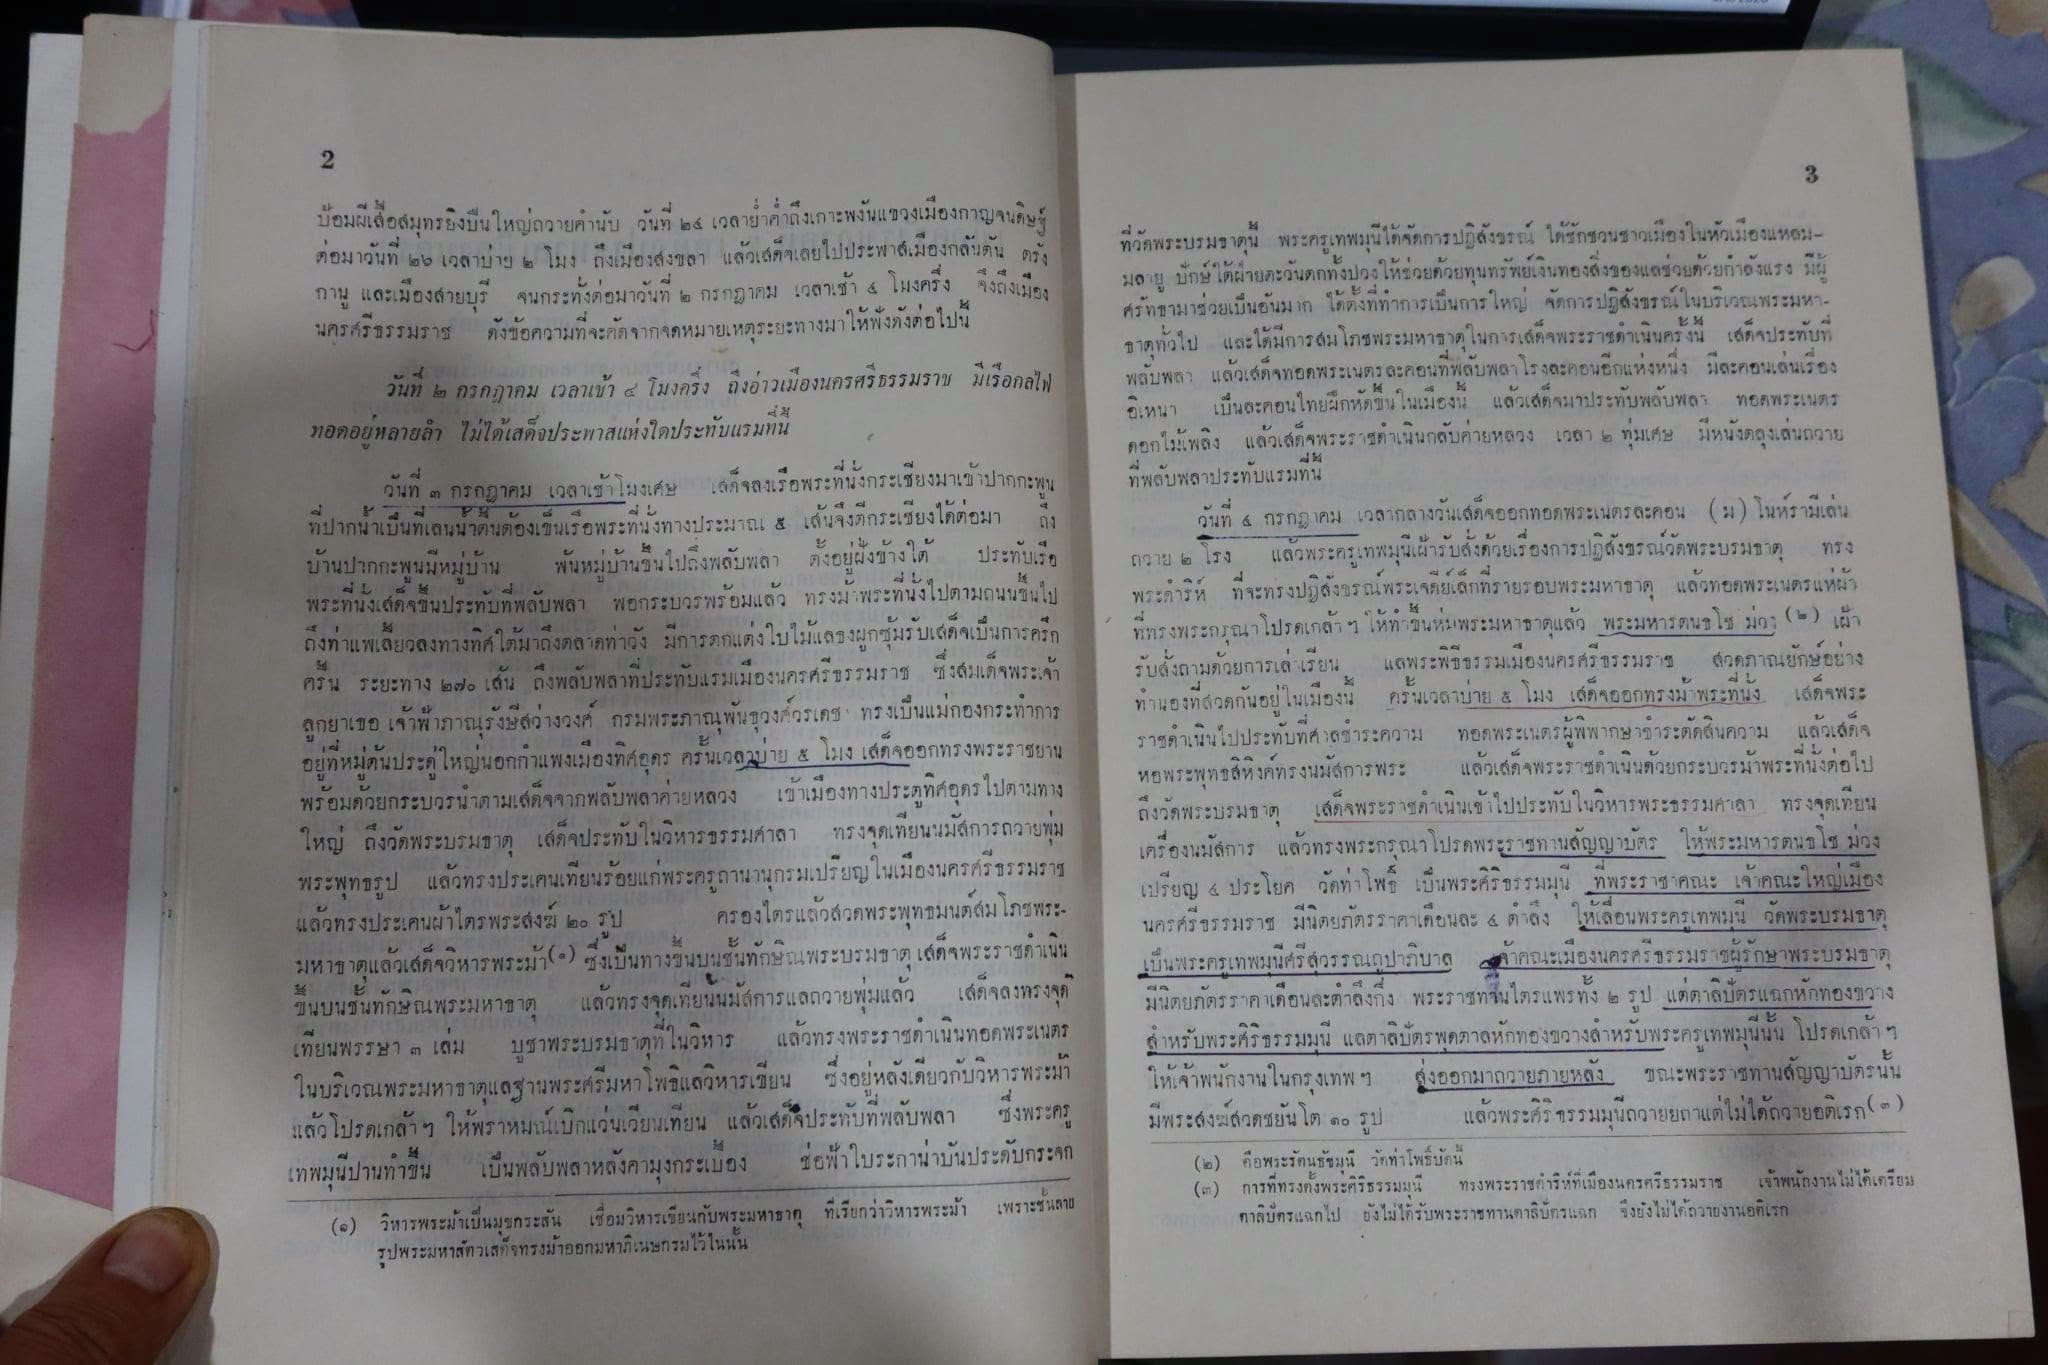 2
ป้อมผีเสื้อสมุทรยิงปืนใหญ่ถวายคำนับ วันที่ ๒๔ เวลาย่ำค่ำถึงเกาะพงันแขวงเมืองกาญจนดิษฐ์
ต่อมาวันที่ ๒๖ เวลาบ่าย ๒ โมง ถึงเมืองสงขลา แล้วเสด็จเลยไปประพาสเมืองกลันตัน ตรัง
กานู และเมืองสายบุรี จนกระทั่งต่อมาวันที่ ๒ กรกฎาคม เวลาเช้า ๔ โมงครึ่ง จึงถึงเมือง
นครศรีธรรมราช ดังข้อความที่จะคัดจากจดหมายเหตุระยะทางมาให้ฟังดังต่อไปนี้
วันที่ ๒ กรกฎาคม เวลาเช้า ๔ โมงครึ่ง ถึงอ่าวเมืองนครศรีธรรมราช มีเรือกลไฟ
ทอดอยู่หลายลำ ไม่ได้เสด็จประพาสแห่งใดประทับแรมที่นี้
วันที่ ๓ กรกฎาคม เวลาเช้าโมงเศษ เสด็จลงเรือพระที่นั่งกระเชียงมาเข้าปากกะพูน
ที่ปากน้ำเป็นที่เลนน้ำตื้นต้องเข็นเรือพระที่นั่งทางประมาณ ๕ เส้นจึงตีกระเชียงได้ต่อมา ถึง
บ้านปากกะพูนมีหมู่บ้าน พ้นหมู่บ้านขึ้นไปถึงพลับพลา ตั้งอยู่ฝั่งข้างใต้ ประทับเรือ
พระที่นั่งเสด็จขึ้นประทับที่พลับพลา พอกระบวรพร้อมแล้ว ทรงม้าพระที่นั่งไปตามถนนขึ้นไป
ถึงท่าแพเลี้ยวลงทางทิศใต้มาถึงตลาดท่าวัง มีการตกแต่งใบไม้แลธงผูกซุ้มรับเสด็จเป็นการครึก
ครื้น ระยะทาง ๒๗๐ เส้น ถึงพลับพลาที่ประทับแรมเมืองนครศรีธรรมราช ซึ่งสมเด็จพระเจ้า
ลูกยาเธอ เจ้าฟ้าภาณุรังษีสว่างวงศ์ กรมพระภาณุพันธุวงศ์วรเดช ทรงเป็นแม่กองกระทำการ
อยู่ที่หมู่ต้นประดู่ใหญ่นอกกำแพงเมืองทิศอุดร ครั้นเวลาบ่าย ๕ โมง เสด็จออกทรงพระราชยาน
พร้อมด้วยกระบวรนำตามเสด็จจากพลับพลาค่ายหลวง เข้าเมืองทางประตูทิศอุดรไปตามทาง
ใหญ่ ถึงวัดพระบรมธาตุ เสด็จประทับในวิหารธรรมศาลา ทรงจุดเทียนนมัสการถวายพุ่ม
พระพุทธรูป แล้วทรงประเคนเทียนร้อยแก่พระครูถานานุกรมเปรียญในเมืองนครศรีธรรมราช
แล้วทรงประเคนผ้าไตรพระสงฆ์ ๒๐ รูป ครองไตรแล้วสวดพระพุทธมนต์สมโภชพระ-
มหาธาตุแล้วเสด็จวิหารพระม้า(๑) ซึ่งเป็นทางขึ้นบนชั้นทักษิณพระบรมธาตุ เสด็จพระราชดำเนิน
ขึ้นบนชั้นทักษิณพระมหาธาตุ แล้วทรงจุดเทียนนมัสการแลถวายพุ่มแล้ว เสด็จลงทรงจุด
เทียนพรรษา ๓ เล่ม บูชาพระบรมธาตุที่ในวิหาร แล้วทรงพระราชดำเนินทอดพระเนตร
ในบริเวณพระมหาธาตุแลฐานพระศรีมหาโพธิแลวิหารเขียน ซึ่งอยู่หลังเดียวกับวิหารพระม้า
แล้วโปรดเกล้าฯ ให้พราหมณ์เบิกแว่นเวียนเทียน แล้วเสด็จประทับที่พลับพลา ซึ่งพระครู
เทพมุนีปานทำขึ้น เป็นพลับพลาหลังคามุงกระเบื้อง ช่อฟ้าใบระกาน่าบันประดับกระจก
(๑) วิหารพระม้าเป็นมุขกระสัน เชื่อมวิหารเขียนกับพระมหาธาตุ ที่เรียกว่าวิหารพระม้า เพราะชั้นลาย
รูปพระมหาสัตวเสด็จทรงม้าออกมหาภิเนษกรมไว้ในนั้น
3
ที่วัดพระบรมธาตุนี้ พระครูเทพมุนีได้จัดการปฏิสังขรณ์ ได้ชักชวนชาวเมืองในหัวเมืองแหลม-
มลายู ปักษ์ใต้ฝ่ายตะวันตกทั้งปวงให้ช่วยด้วยทุนทรัพย์เงินทองสิ่งของแลช่วยด้วยกำลังแรง มีผู้
ศรัทธามาช่วยเป็นอันมาก ได้ตั้งที่ทำการเป็นการใหญ่ จัดการปฏิสังขรณ์ในบริเวณพระมหา-
ธาตุทั่วไป และได้มีการสมโภชพระมหาธาตุในการเสด็จพระราชดำเนินครั้งนี้ เสด็จประทับที่
พลับพลา แล้วเสด็จทอดพระเนตรละคอนที่พลับพลาโรงละคอนอีกแห่งหนึ่ง มีละคอนเล่นเรื่อง
อิเหนา เป็นละคอนไทยฝึกหัดขึ้นในเมืองนี้ แล้วเสด็จมาประทับพลับพลา ทอดพระเนตร
ดอกไม้เพลิง แล้วเสด็จพระราชดำเนินกลับค่ายหลวง เวลา ๒ ทุ่มเศษ มีหนังตลุงเล่นถวาย
ที่พลับพลาประทับแรมที่นี้
วันที่ ๔ กรกฎาคม เวลากลางวันเสด็จออกทอดพระเนตรละคอน (ม) โนห์รามีเล่น
ถวาย ๒ โรง แล้วพระครูเทพมุนีเฝ้ารับสั่งด้วยเรื่องการปฏิสังขรณ์วัดพระบรมธาตุ ทรง
พระดำริห์ ที่จะทรงปฏิสังขรณ์พระเจดีย์เล็กที่รายรอบพระมหาธาตุ แล้วทอดพระเนตรแห่ผ้า
ที่ทรงพระกรุณาโปรดเกล้าฯ ให้ทำขึ้นห่มพระมหาธาตุแล้ว พระมหารตนธโช ม่วง (๒) เฝ้า
รับสั่งถามด้วยการเล่าเรียน แลพระพิธีธรรมเมืองนครศรีธรรมราช สวดภาณยักษ์อย่าง
ทำนองที่สวดกันอยู่ในเมืองนี้ ครั้นเวลาบ่าย ๕ โมง เสด็จออกทรงม้าพระที่นั่ง เสด็จพระ
ราชดำเนินไปประทับที่ศาลชำระความ ทอดพระเนตรผู้พิพากษาชำระตัดสินความ แล้วเสด็จ
หอพระพุทธสิหิงค์ทรงนมัสการพระ แล้วเสด็จพระราชดำเนินด้วยกระบวรม้าพระที่นั่งต่อไป
ถึงวัดพระบรมธาตุ เสด็จพระราชดำเนินเข้าไปประทับในวิหารพระธรรมศาลา ทรงจุดเทียน
เครื่องนมัสการ แล้วทรงพระกรุณาโปรดพระราชทานสัญญาบัตร ให้พระมหารตนธโช ม่วง
เปรียญ ๔ ประโยค วัดท่าโพธิ์ เป็นพระศิริธรรมมุนี ที่พระราชาคณะ เจ้าคณะใหญ่เมือง
นครศรีธรรมราช มีนิตยภัตรราคาเดือนละ ๔ ตำลึง ให้เลื่อนพระครูเทพมุนี วัดพระบรมธาตุ
เป็นพระครูเทพมุนีศรีสุวรรณถูปาภิบาล เจ้าคณะเมืองนครศรีธรรมราชผู้รักษาพระบรมธาตุ
มีนิตยภัตรราคาเดือนละตำลึงกึ่ง พระราชทานไตรแพรทั้ง ๒ รูป แต่ตาลิปัตรแฉกหักทองขวาง
สำหรับพระศิริธรรมมุนี แลตาลิปัตรพุดตาลหักทองขวางสำหรับพระครูเทพมุนีนั้น โปรดเกล้าฯ
ให้เจ้าพนักงานในกรุงเทพฯ ส่งออกมาถวายภายหลัง ขณะพระราชทานสัญญาบัตรนั้น
มีพระสงฆ์สวดชยันโต ๑๐ รูป แล้วพระศิริธรรมมุนีถวายยถาแต่ไม่ได้ถวายอติเรก(๓)
(๒) คือพระรัตนธัชมุนี วัดท่าโพธิ์บัดนี้
(๓) การที่ทรงตั้งพระศิริธรรมมุนี ทรงพระราชดำริห์ที่เมืองนครศรีธรรมราช เจ้าพนักงานไม่ได้เตรียม
ตาลิปัตรแฉกไป ยังไม่ได้รับพระราชทานตาลิปัตรแฉก จึงยังไม่ได้ถวายงานอติเรก